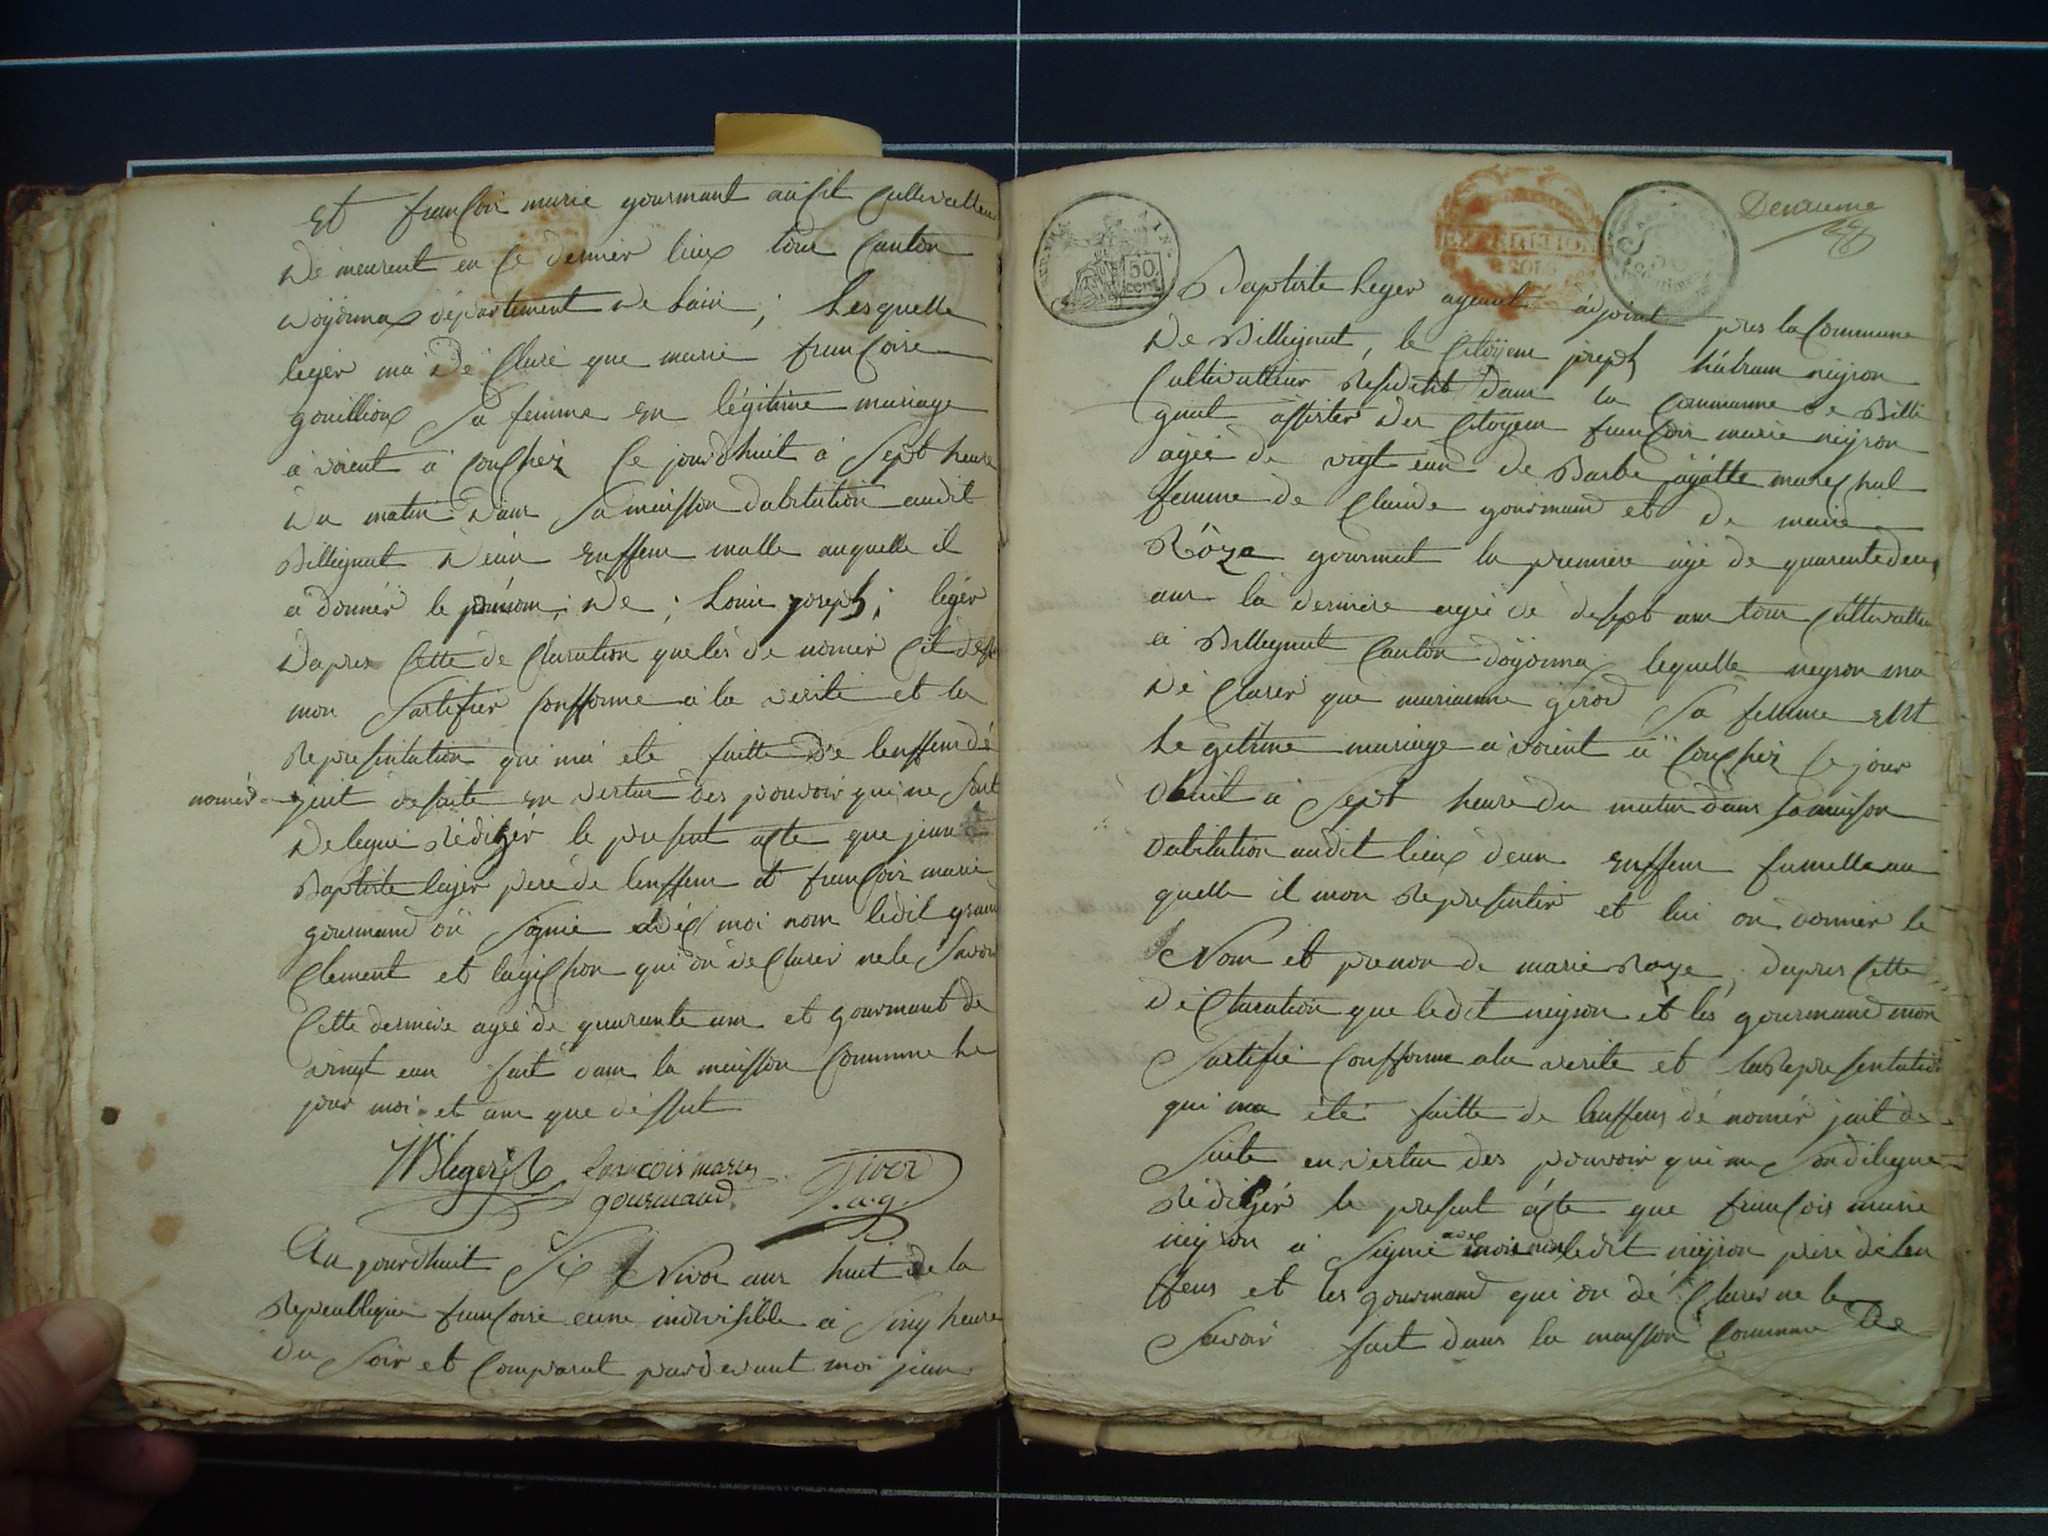 Et françoir marie gourmant aûsit Cultivatteur
De meurent en Ce dernier lieux tour Canton
Doÿonnax département De Lain ; Lesquelle
legér ma Dé Claré que marie françoise
gouillioux Sa femme En légitime mariage
à voient a Couchéz Ce jourdhuit à Sept heure
Du matin Dans Sa meisson dabitation audit
Billiegnat Deun Enffent malle auquelle il
a donnér le prénom ; De ; Louie joseph ; legér
Daprer Cette de Claration que lés de nomér
mon Sartifier Confforme a la verité et la
Representation qui ma eté faitte De lenffent dé
nomér jeait desuite En vertue des pouvoir qui me Sont
Delegué Rédigér le present aCte que jean
Baptiste legér pere de lenffent et françoir marie
gourmand on Signié avéx moi nom ledit
Clement et qui on de Clarér ne le Savoir
Cette derniere ageé de quarante anr et gourmant de
vingt ean fait dans la meisson Commune Le
jour moi et anr que déssut
JBleger françois marie gourmand Tiver a.g.
Au jourdhuit Six Nivos anr huit de la
Republiquie françoise eune indivisible a Sinq heure
du Soir et Comparut pardevant moi jean
50 cent
Deuxieme
Baptiste Leger agent adjoint pres la Commune
De Billiegnat, le Citoÿen joseph hábram neÿron
Cultivatteur Residant dans la Commune de Billi
gnat assister Des Citoyen françoir marie neÿron
ageé de vigt ean de Barbe agatte mareChal
femme de Claude gourmand et de marie
Rôze gourmat la premiere agé de quarente deux
anr la derniere ageé de desept anr tour Culttivatteur
a Billiegnat Canton doÿonnax lequelle neyron ma
Dé Clarér que marianne gérod Sa femme ent
Le gétime mariage a voient a Couchéz Ce jour
dhuit a Sept heure du matin dans sa meison
dabitation audit lieux deun Enffent fumelle au
quelle il mon Representér et lui on donnér le
Nom et prenon de marie Roze, daprer Cette
dé Claration que ledit neÿron et lés gourmand mon
Sartifié Confforme ala verite et la Representation
qui ma été faitte de lenffens dé nomér jait de
Suite en vertue des pouvoir qui me Son delegué
Rédigér le present aCte que françois marie
neÿron a Signié avéx moi non ledit neÿron pere de len
ffens et les gourmand qui on dé Clarer ne le
Savoir fait dans la maisson Commune De